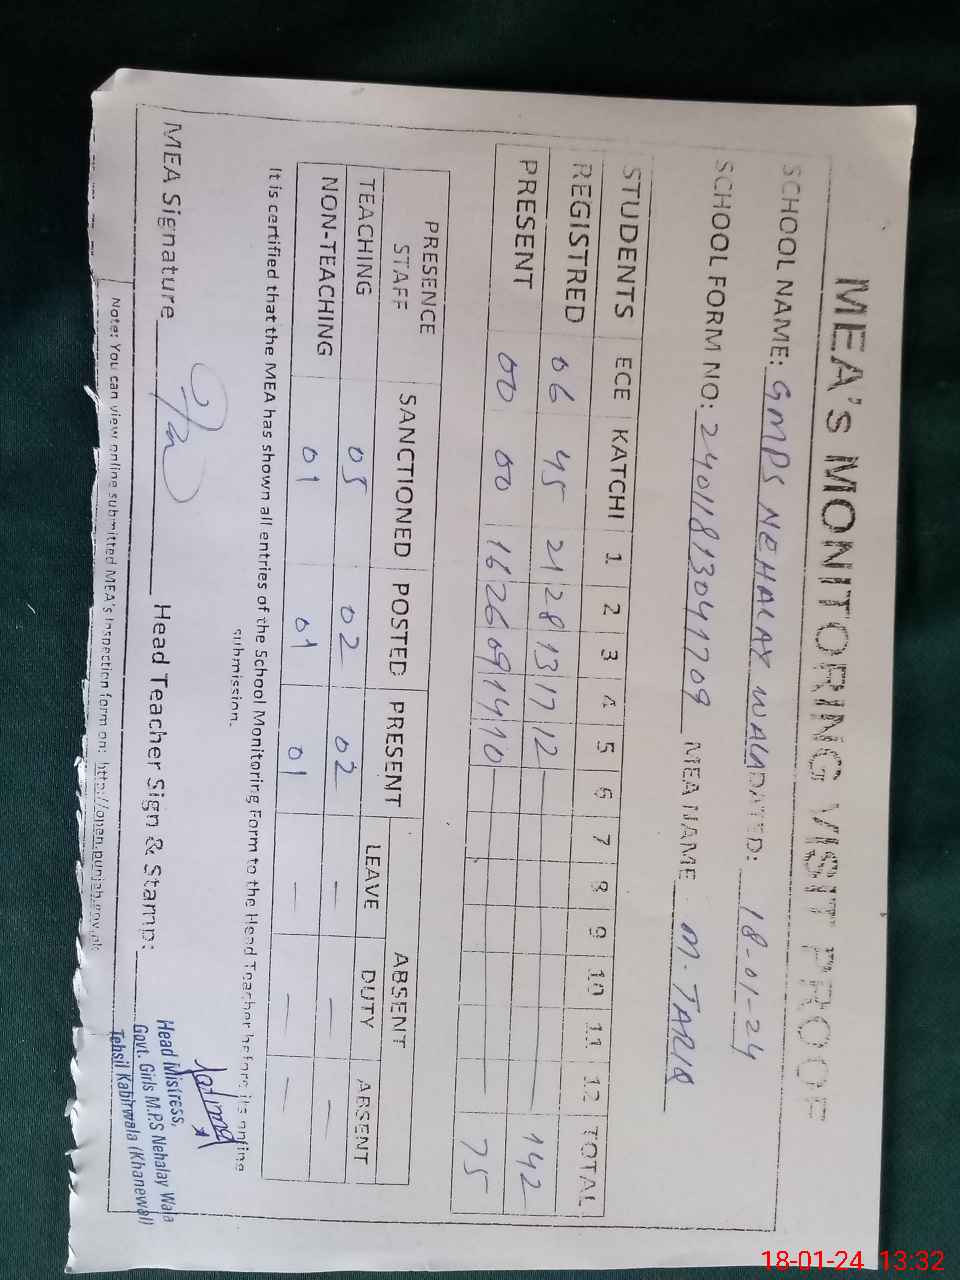 MEA's MONITORING VISIT PROOF
SCHOOL NAME: GMPS NEHALAY WALA DATED: 18-01-24
SCHOOL FORM NO: 2401813041709 MEA NAME M. TARIQ
STUDENTS ECE KATCHI 1 2 3 4 5 6 7 8 9 10 11 12 TOTAL
REGISTRED 06 45 21 28 13 17 12 — 142
PRESENT 00 00 16 26 09 14 10 — 75
PRESENCE STAFF SANCTIONED POSTED PRESENT ABSENT
LEAVE DUTY ABSENT
TEACHING 05 02 02 — — —
NON-TEACHING 01 01 01 — — —
It is certified that the MEA has shown all entries of the School Monitoring Form to the Head Teacher before its online
submission.
MEA Signature Head Teacher Sign & Stamp:
Head Mistress,
Govt. Girls M.P.S Nehalay Wala
Tehsil Kabirwala (Khanewal)
Note: You can view online submitted MEA's Inspection form on: http://open.punjab.gov.pk
18-01-24 13:32